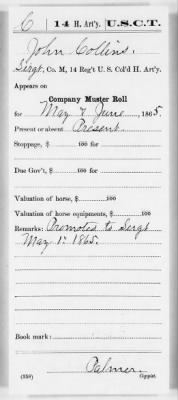 C 14 H. Art'y. U.S.C.T.
John Collins
Sergt, Co. M, 14 Reg't U. S. Col'd H. Art'y.
Appears on
Company Muster Roll
for May & June, 1865
Present or absent Present
Stoppage, $ 100 for
Due Gov't, $ 100 for
Valuation of horse, $ 100
Valuation of horse equipments, $ 100
Remarks: Promoted to Sergt
May 1" 1865.
Book mark:
Palmer
(358) Copyist.